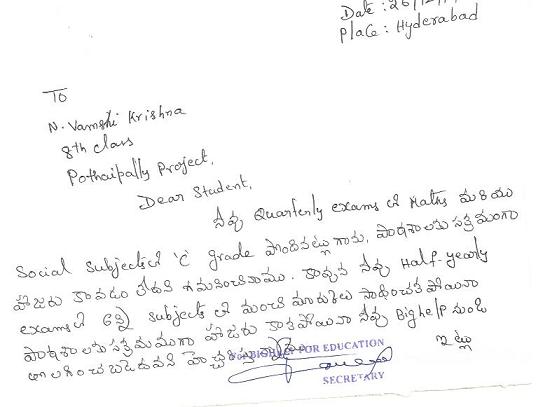 Date : 26/12/
Place : Hyderabad
To
N. Vamshi Krishna
8th class
Pothaipally Project.
Dear Student,
నీవు Quarterly exams లో Maths మరియు
Social subjects లో 'C' grade పొందినట్లు గాను, పాఠశాలకు సక్రమంగా
హాజరు కావడం లేదని గమనించినాము. కావున నీవు Half-yearly
exams లో subjects లో మంచి మార్కులు సాధించక పోయినా
పాఠశాలకు సక్రమముగా హాజరు కాక పోయినా నీవు Bighelp నుండి
తొలగించబడెదవని హెచ్చరిస్తున్నాము.
ఇట్లు
For BIGHELP FOR EDUCATION
SECRETARY